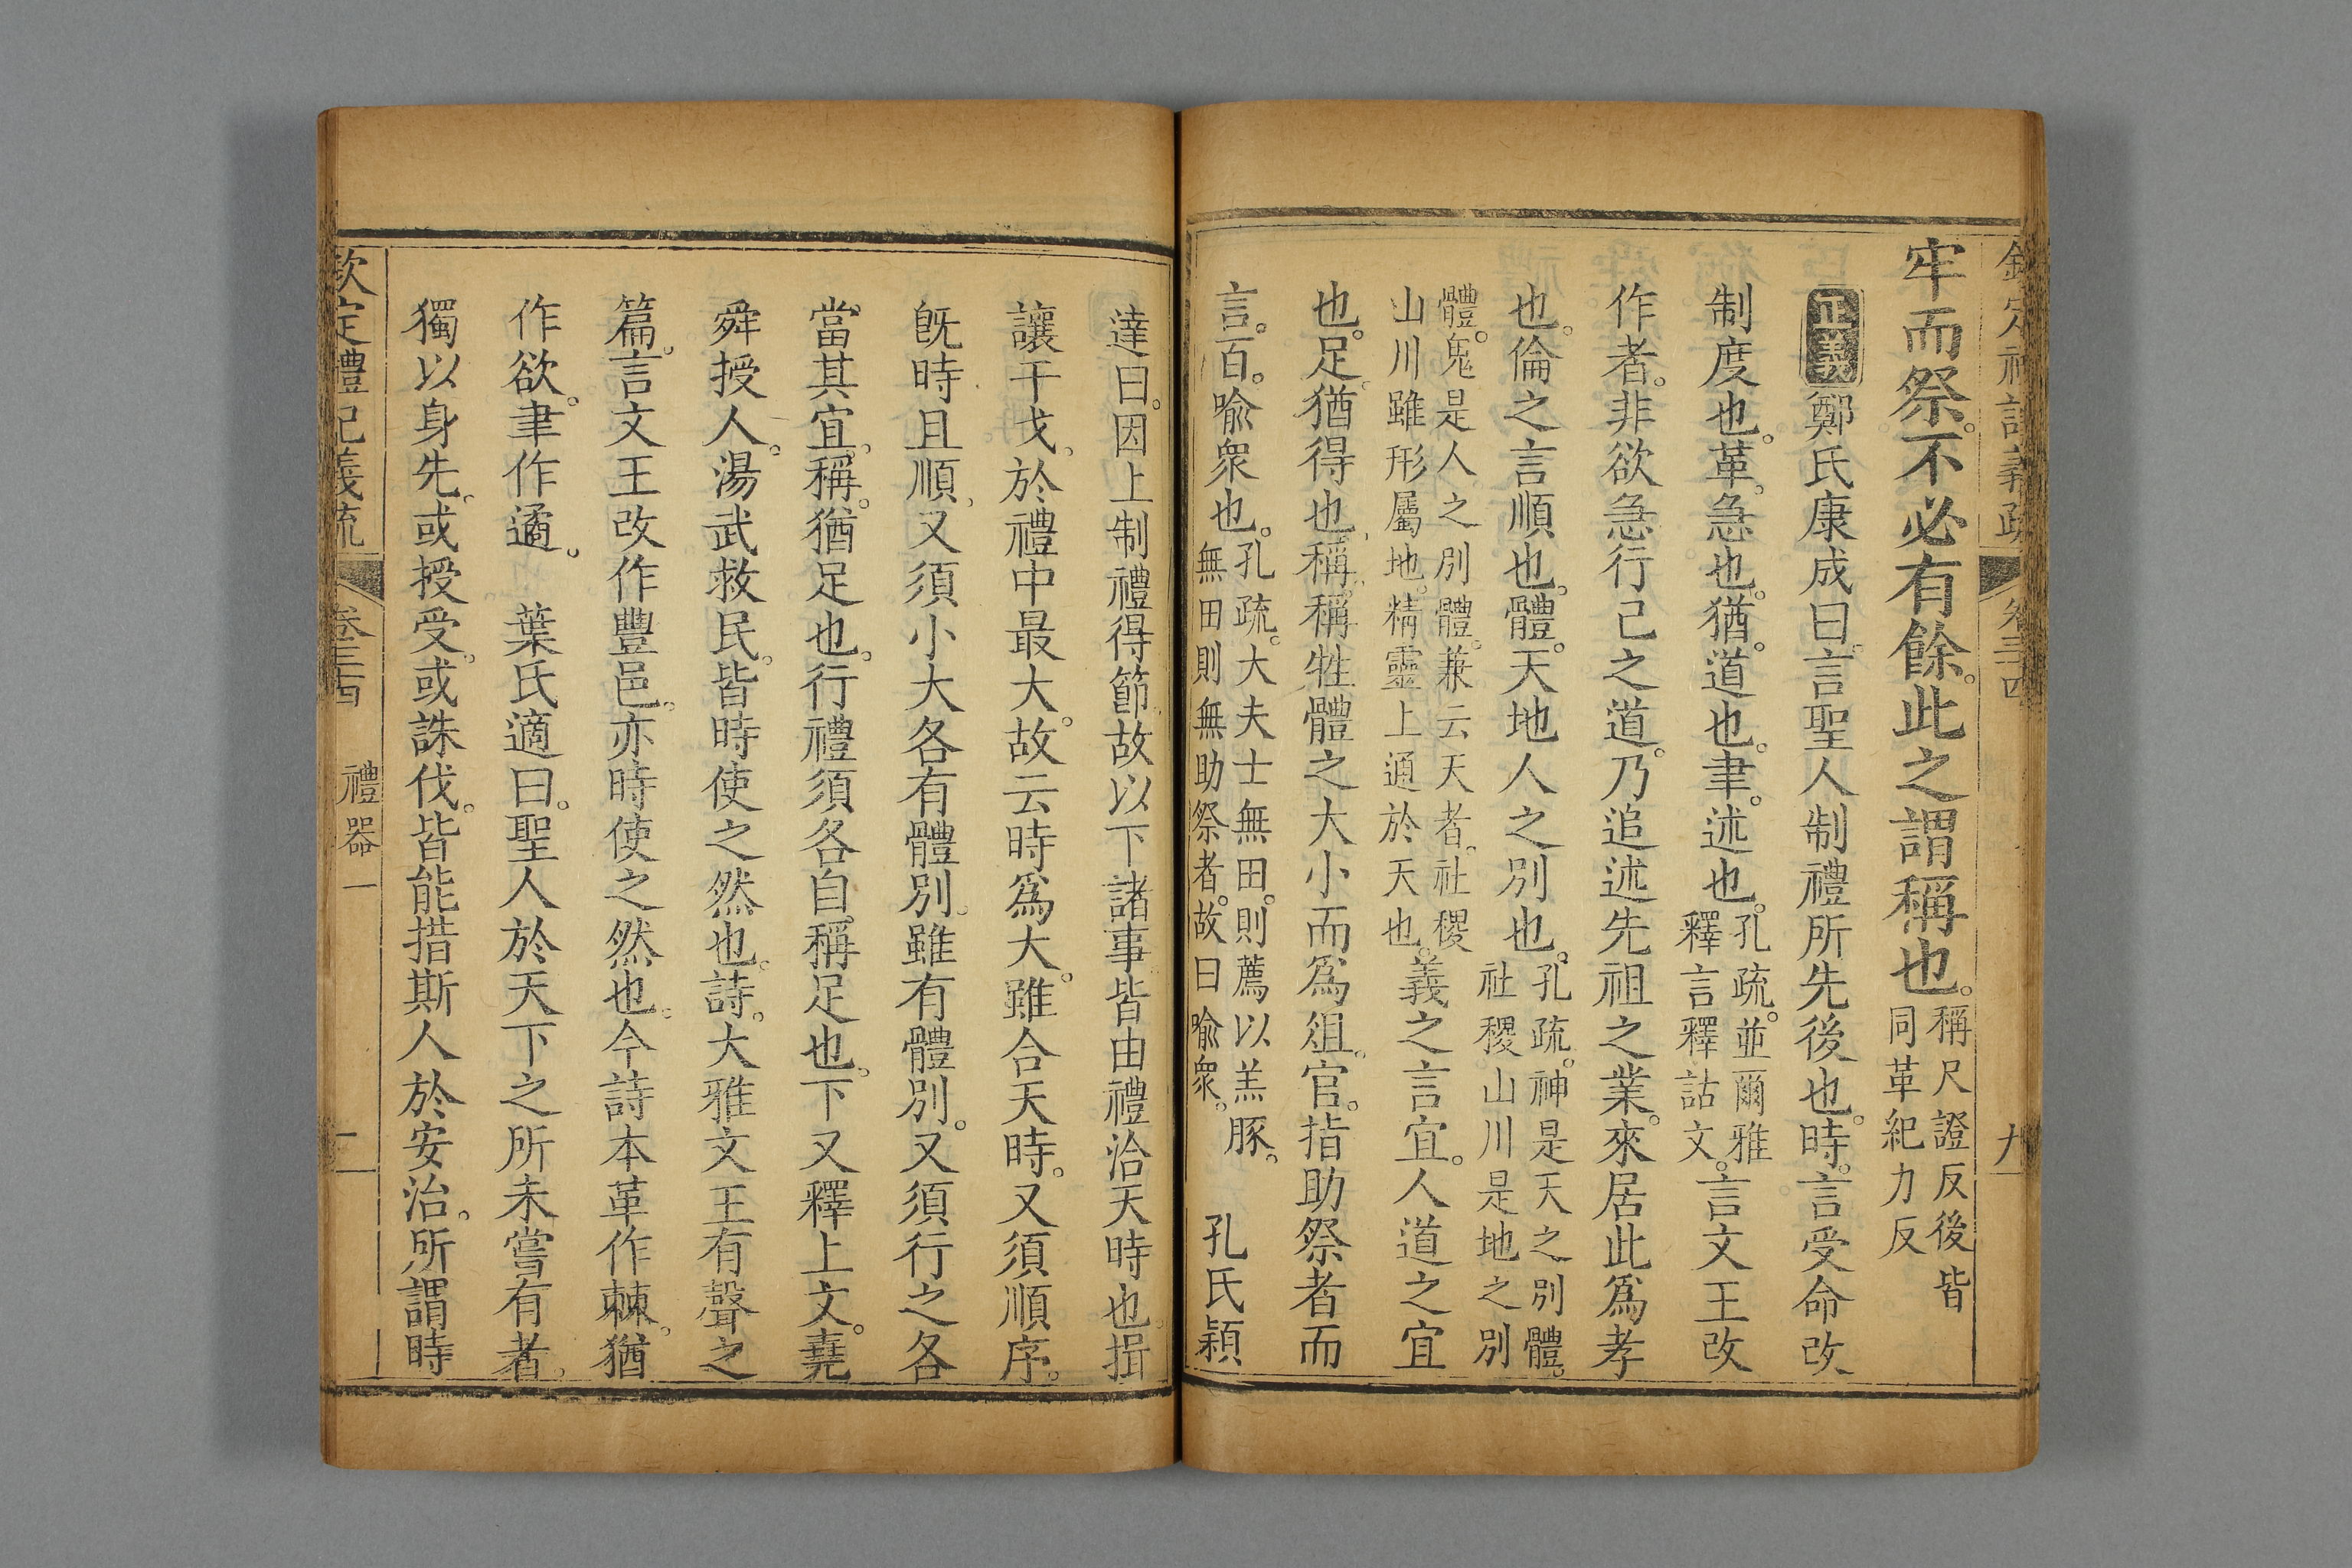 欽定禮記義疏 卷三十四 九
牢而祭。不必有餘。此之謂稱也。稱尺證反後皆同革紀力反
正義 鄭氏康成曰。言聖人制禮所先後也。時。言受命改
制度也。革。急也。猶。道也。聿。述也。孔疏。並爾雅釋言釋詁文。言文王改
作者。非欲急行己之道。乃追述先祖之業。來居此爲孝
也。倫之言順也。體。天地人之別也。孔疏。神是天之別體。社稷山川是地之別
體。鬼是人之別體。兼云天者。社稷山川雖形屬地。精靈上通於天也。義之言宜。人道之宜
也。足。猶得也。稱。稱牲體之大小而爲俎。官。指助祭者而
言。百。喻衆也。孔疏。大夫士無田。則薦以羔豚。無田則無助祭者。故曰喻衆。 孔氏穎
達曰。因上制禮得節。故以下諸事皆由禮洽天時也。揖
讓干戈。於禮中最大。故云時爲大。雖合天時。又須順序。
旣時且順。又須小大各有體別。雖有體別。又須行之各
當其宜。稱。猶足也。行禮須各自稱足也。下又釋上文。堯
舜授人。湯武救民。皆時使之然也。詩。大雅文王有聲之
篇。言文王改作豐邑。亦時使之然也。今詩本革作棘。猶
作欲。聿作遹。 葉氏適曰。聖人於天下之所未嘗有者。
獨以身先。或授受。或誅伐。皆能措斯人於安治。所謂時
欽定禮記義疏 卷三十四 禮器一